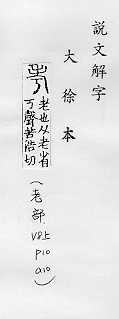 說文解字
大徐本
老也从老省
丂聲苦浩切
(老部
V8上
P10
a10)